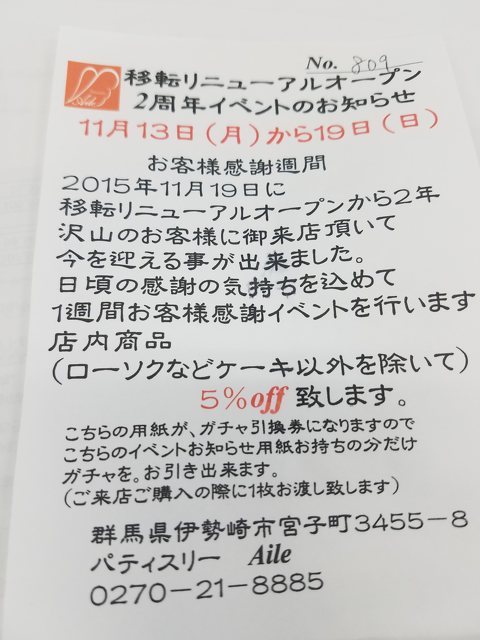 No. 809
Aile
移転リニューアルオープン
2周年イベントのお知らせ
11月13日(月)から19日(日)
お客様感謝週間
2015年11月19日に
移転リニューアルオープンから2年
沢山のお客様に御来店頂いて
今を迎える事が出来ました。
日頃の感謝の気持ちを込めて
1週間お客様感謝イベントを行います
店内商品
(ローソクなどケーキ以外を除いて)
5%off 致します。
こちらの用紙が、ガチャ引換券になりますので
こちらのイベントお知らせ用紙お持ちの分だけ
ガチャを。お引き出来ます。
(ご来店ご購入の際に1枚お渡し致します)
群馬県伊勢崎市宮子町3455-8
パティスリー Aile
0270-21-8885